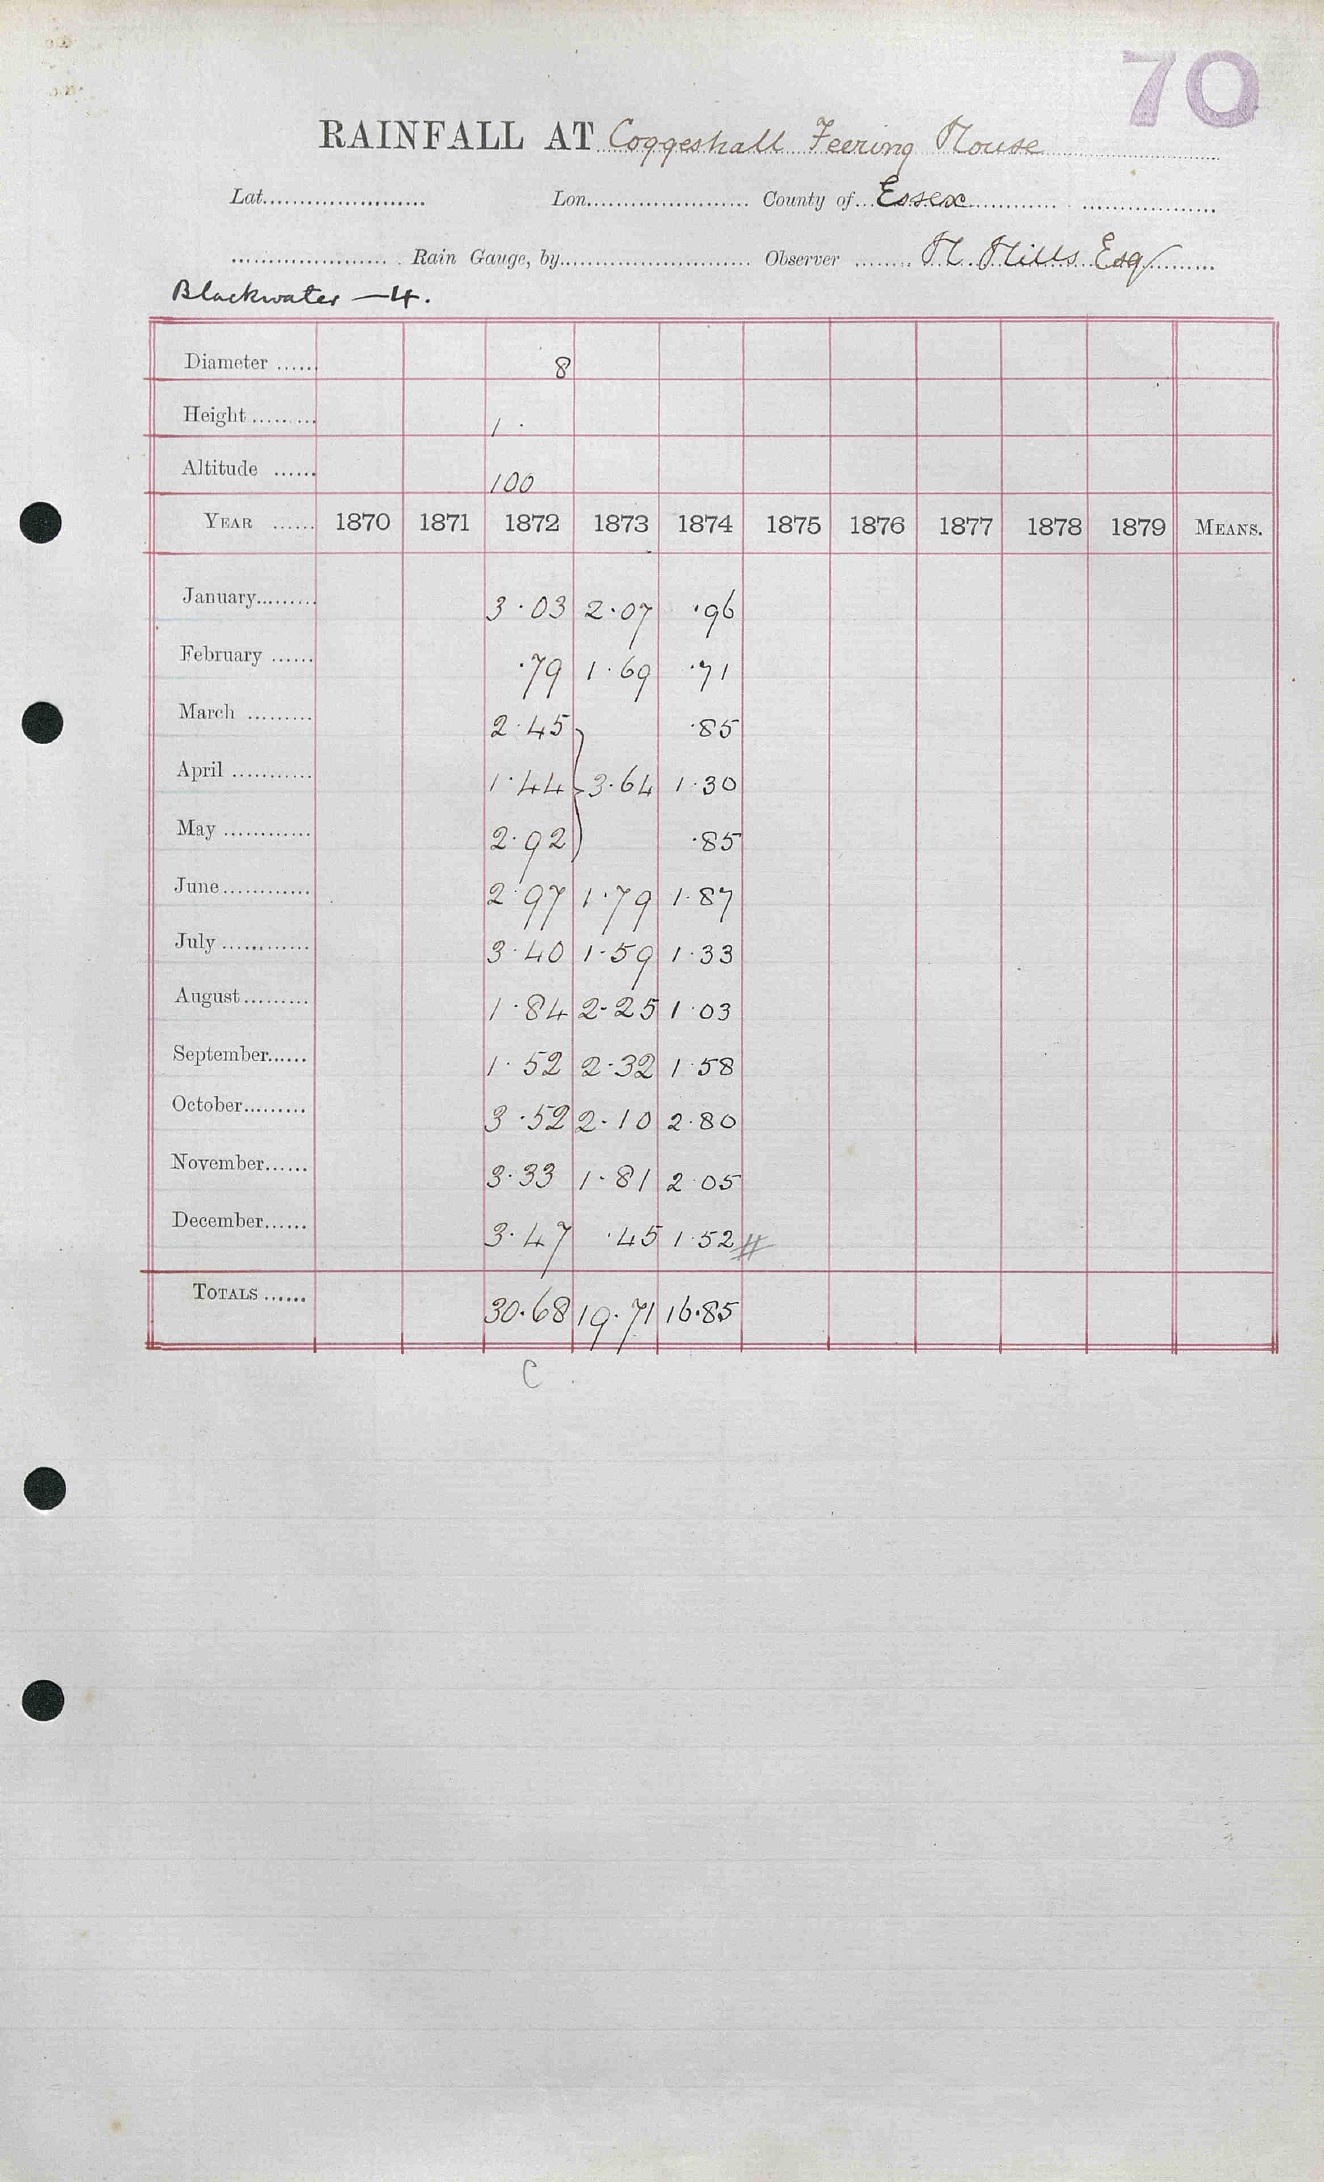 70
RAINFALL AT Coggeshall Feering House
Lat. Lon. County of Essex
Rain Gauge, by Observer H. Hills Esq
Blackwater — 4.
Diameter 8
Height 1 .
Altitude 100
YEAR 1870 1871 1872 1873 1874 1875 1876 1877 1878 1879 MEANS.
January 3.03 2.07 .96
February .79 1.69 .71
March 2.45 .85
April 1.44 } 3.64 1.30
May 2.92 .85
June 2.97 1.79 1.87
July 3.40 1.59 1.33
August 1.84 2.25 1.03
September 1.52 2.32 1.58
October 3.52 2.10 2.80
November 3.33 1.81 2.05
December 3.47 .45 1.52 #
TOTALS 30.68 19.71 16.85
C